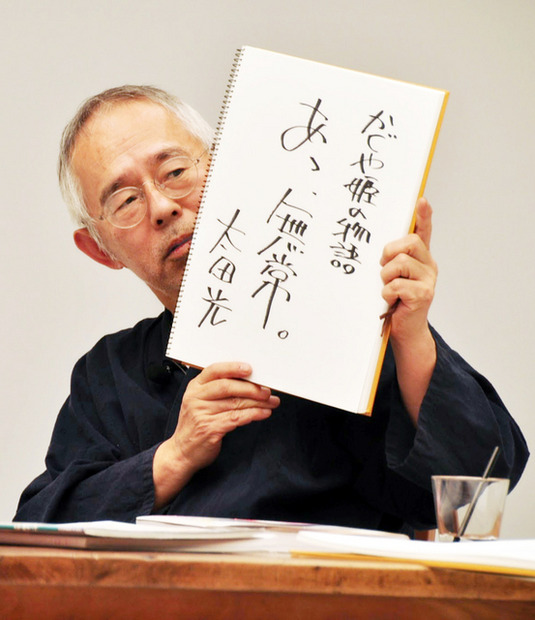 かぐや姫の物語
あゝ、無常。
太田光